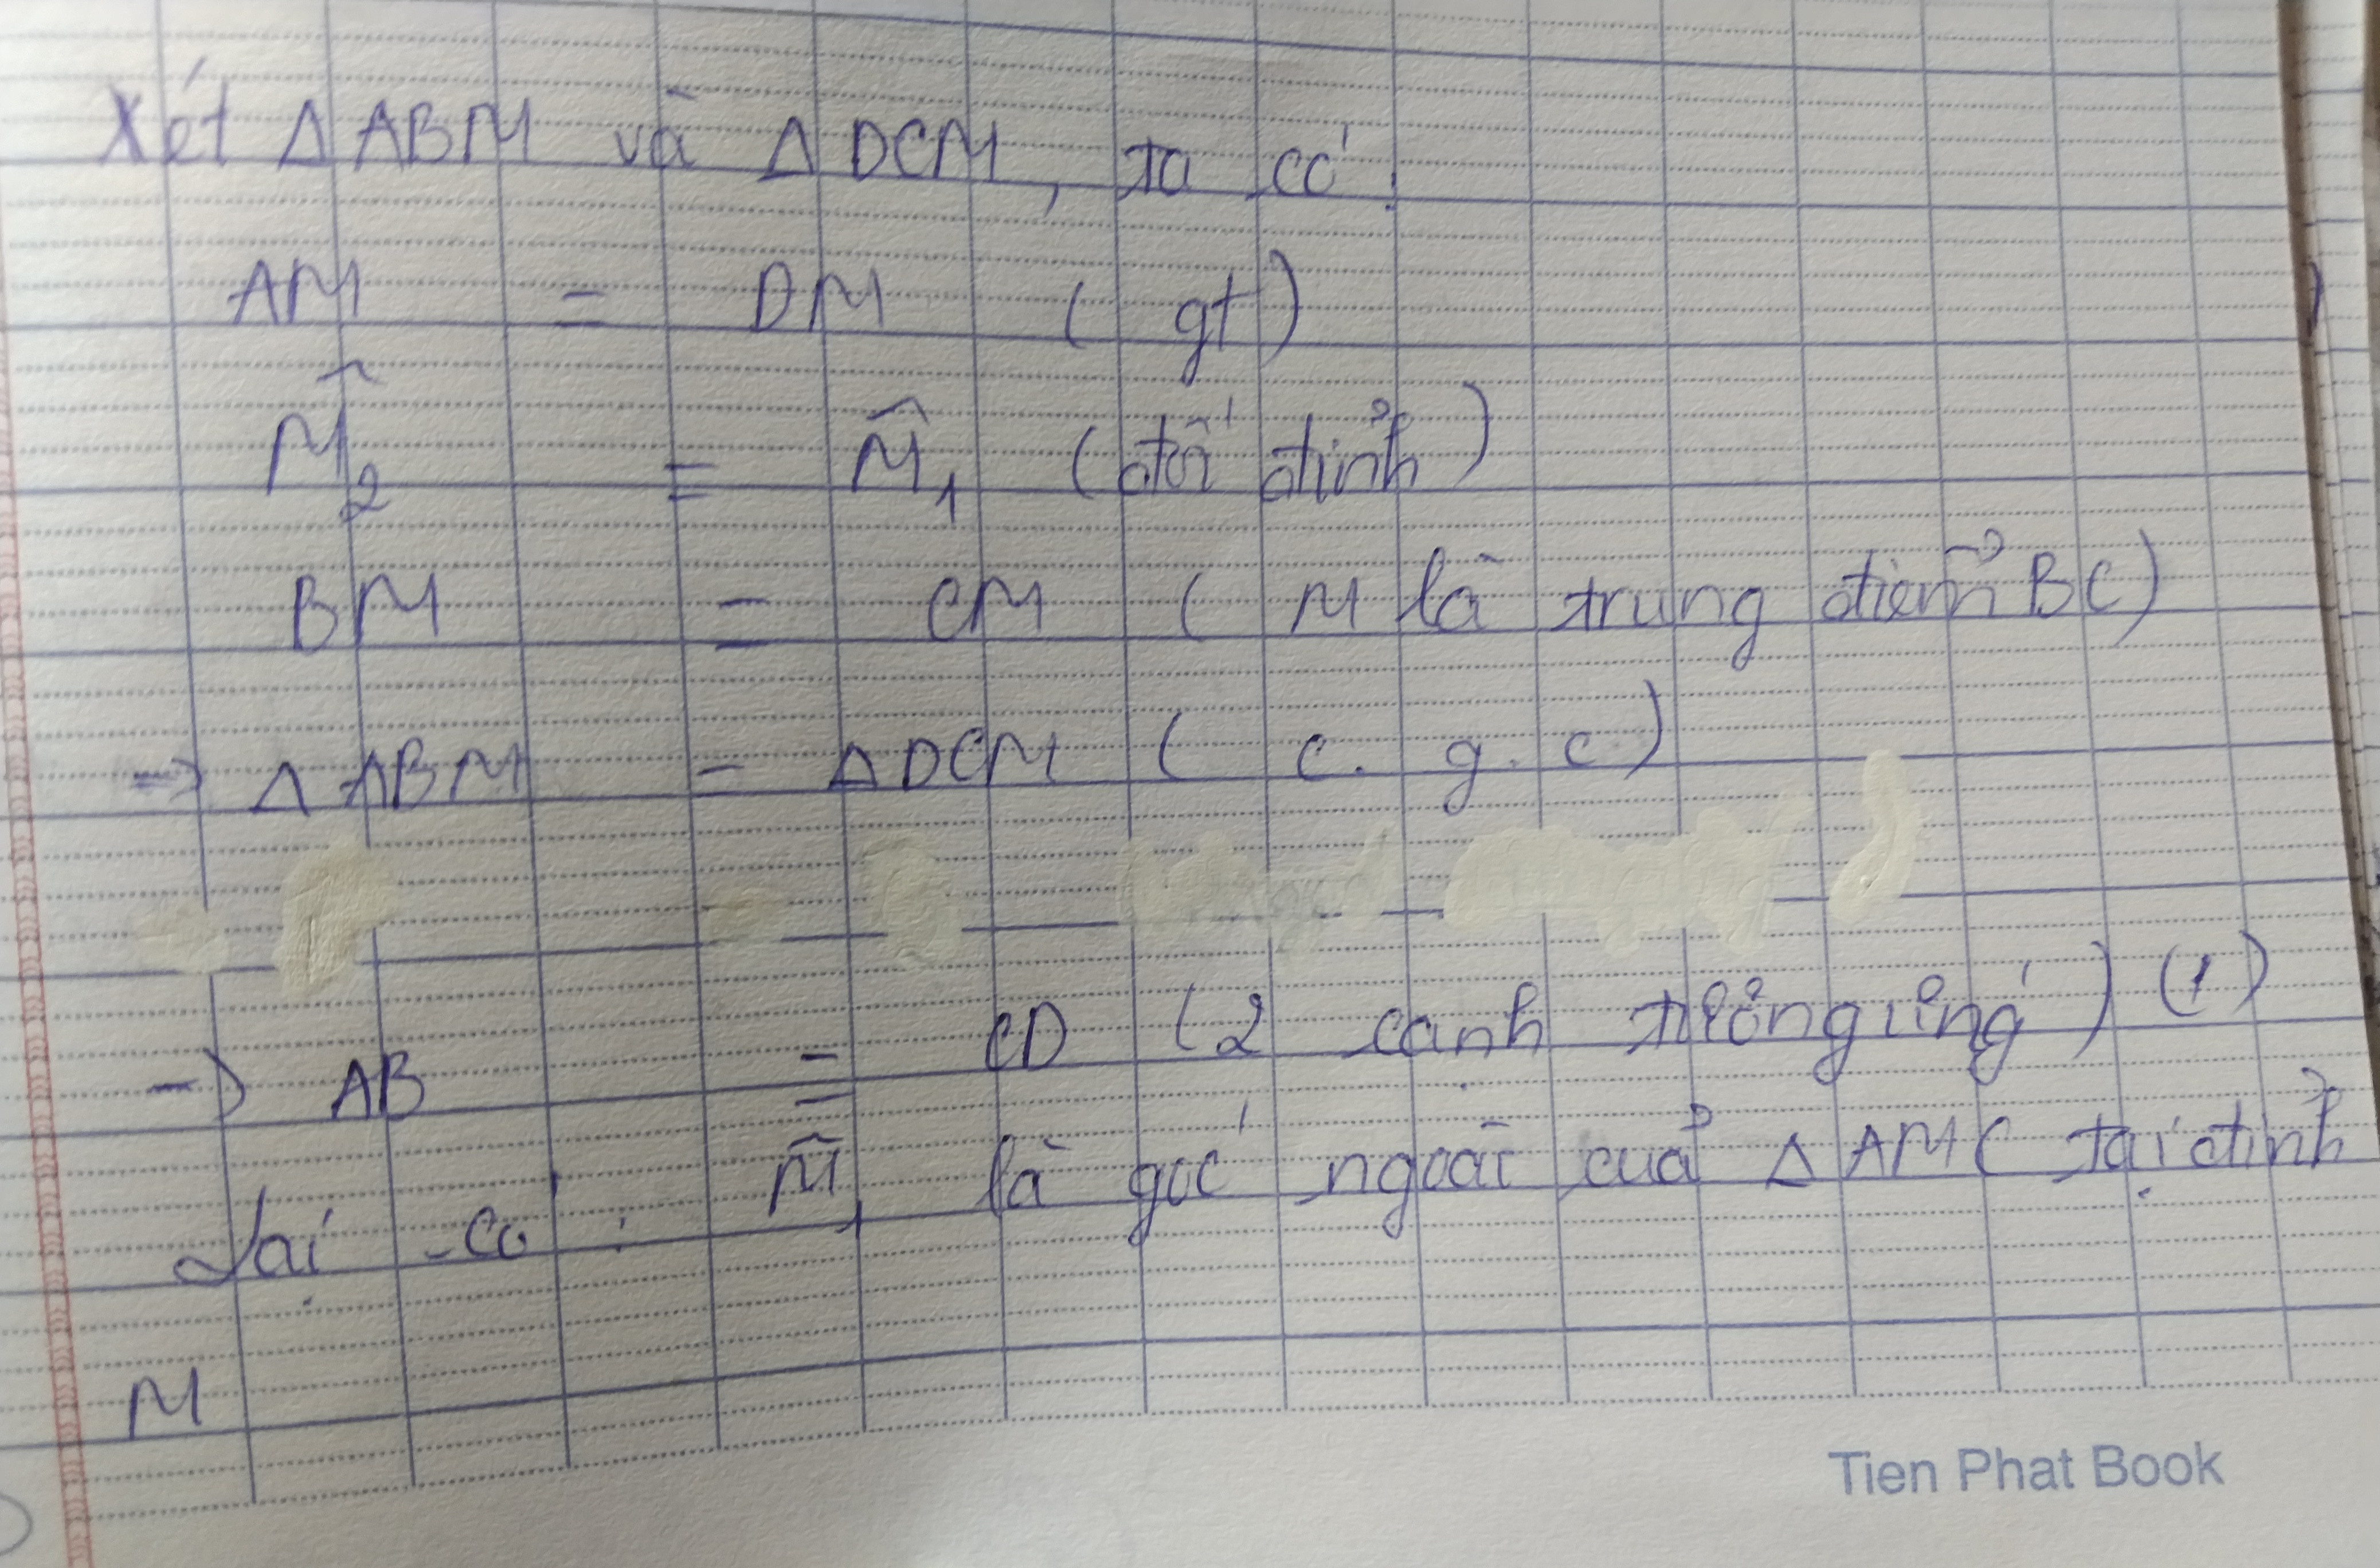 Xét Δ ABM và Δ DCM, ta có:
AM = DM ( gt)
M̂₂ = M̂₁ (đối đỉnh)
BM = CM ( M là trung điểm BC)
=> Δ ABM = Δ DCM ( c. g. c)
-> AB = CD (2 cạnh tương ứng) (1)
Lại có: M̂₁ là góc ngoài của Δ AMC tại đỉnh
M
Tien Phat Book